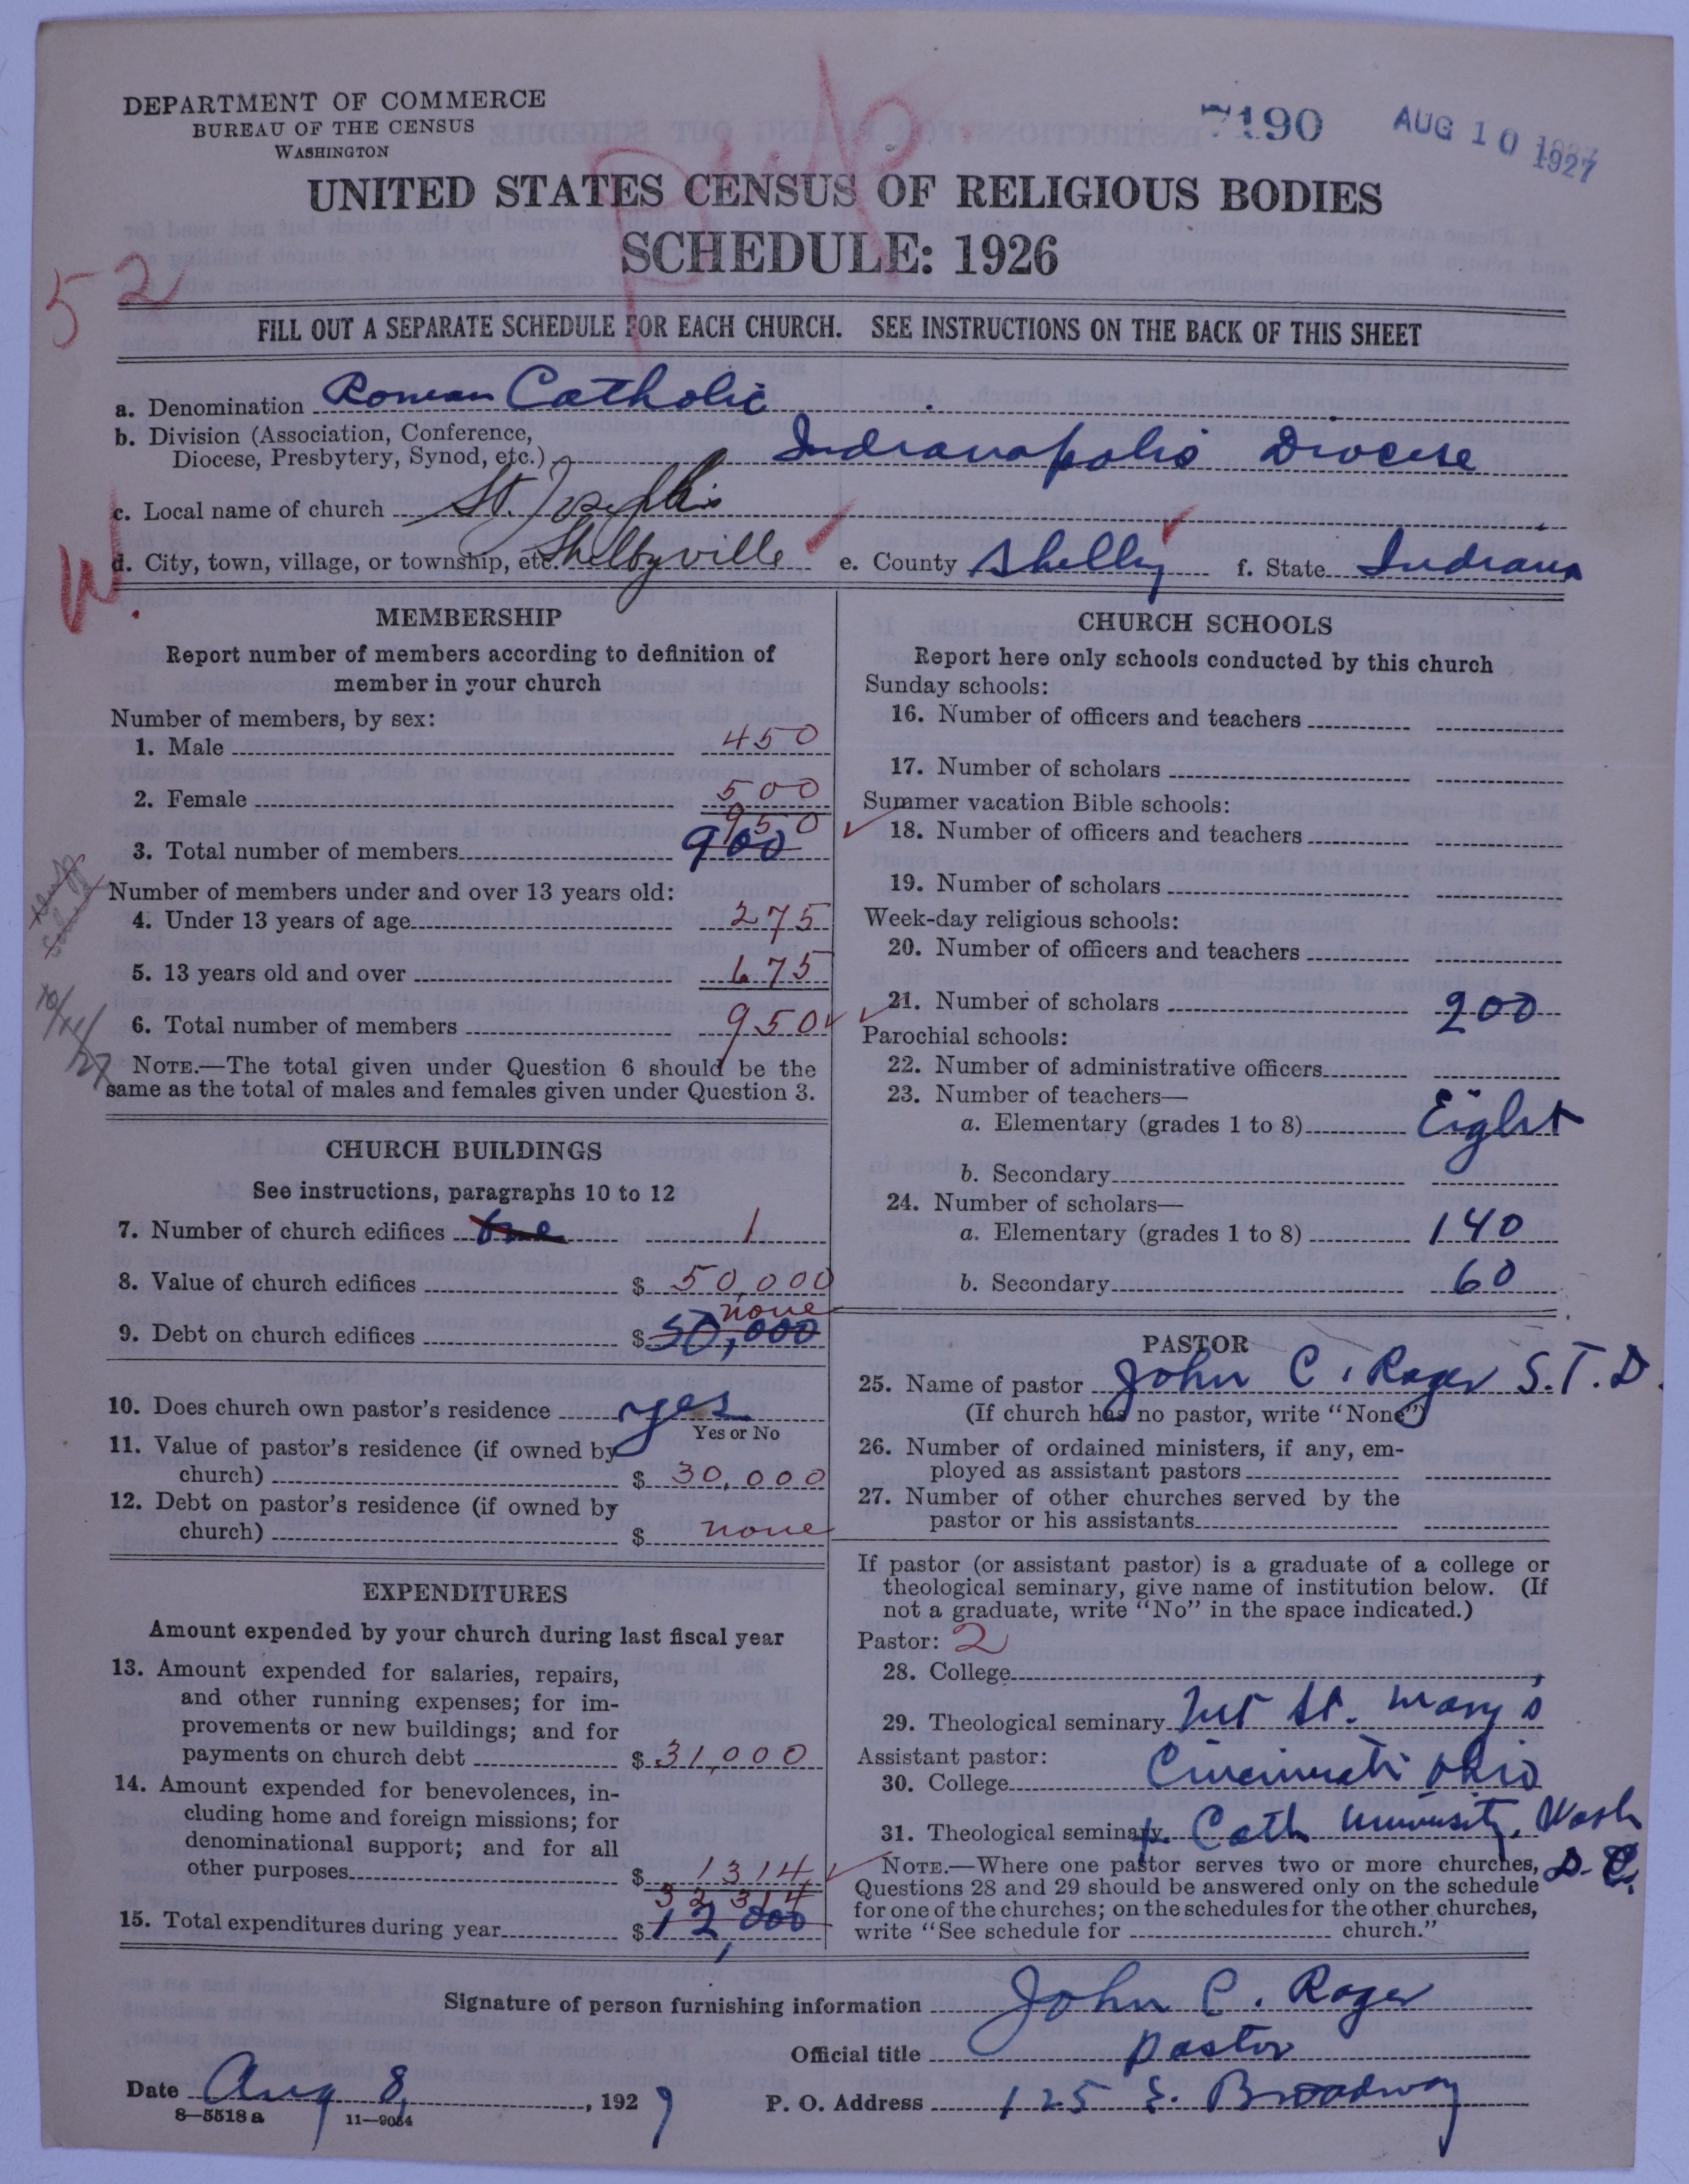 DEPARTMENT OF COMMERCE
BUREAU OF THE CENSUS
WASHINGTON
7190
AUG 10 1927
UNITED STATES CENSUS OF RELIGIOUS BODIES
SCHEDULE: 1926
52
FILL OUT A SEPARATE SCHEDULE FOR EACH CHURCH. SEE INSTRUCTIONS ON THE BACK OF THIS SHEET
a. Denomination Roman Catholic
b. Division (Association, Conference,
Diocese, Presbytery, Synod, etc.) Indianapolis Diocese
c. Local name of church St. Joseph's
d. City, town, village, or township, etc. Shelbyville e. County Shelby f. State Indiana
W.
MEMBERSHIP
Report number of members according to definition of
member in your church
Number of members, by sex:
1. Male 450
2. Female 500
950
3. Total number of members 900
Number of members under and over 13 years old:
4. Under 13 years of age 275
5. 13 years old and over 675
6. Total number of members 950
10/11/27
NOTE.—The total given under Question 6 should be the
same as the total of males and females given under Question 3.
CHURCH BUILDINGS
See instructions, paragraphs 10 to 12
7. Number of church edifices one 1
8. Value of church edifices $ 50,000
none
9. Debt on church edifices $ 50,000
10. Does church own pastor's residence yes
Yes or No
11. Value of pastor's residence (if owned by
church) $ 30,000
12. Debt on pastor's residence (if owned by
church) $ none
EXPENDITURES
Amount expended by your church during last fiscal year
13. Amount expended for salaries, repairs,
and other running expenses; for im-
provements or new buildings; and for
payments on church debt $ 31,000
14. Amount expended for benevolences, in-
cluding home and foreign missions; for
denominational support; and for all
other purposes $ 1314
32 314
15. Total expenditures during year $ 12,000
CHURCH SCHOOLS
Report here only schools conducted by this church
Sunday schools:
16. Number of officers and teachers
17. Number of scholars
Summer vacation Bible schools:
18. Number of officers and teachers
19. Number of scholars
Week-day religious schools:
20. Number of officers and teachers
21. Number of scholars 200
Parochial schools:
22. Number of administrative officers
23. Number of teachers—
a. Elementary (grades 1 to 8) Eight
b. Secondary
24. Number of scholars—
a. Elementary (grades 1 to 8) 140
b. Secondary 60
PASTOR
25. Name of pastor John C. Rager S.T.D.
(If church has no pastor, write "None")
26. Number of ordained ministers, if any, em-
ployed as assistant pastors
27. Number of other churches served by the
pastor or his assistants
If pastor (or assistant pastor) is a graduate of a college or
theological seminary, give name of institution below. (If
not a graduate, write "No" in the space indicated.)
Pastor: 2
28. College
29. Theological seminary Mt St. Mary's
Assistant pastor:
30. College Cincinnati Ohio
31. Theological seminary Cath University, Wash
D. C.
NOTE.—Where one pastor serves two or more churches,
Questions 28 and 29 should be answered only on the schedule
for one of the churches; on the schedules for the other churches,
write "See schedule for church."
Signature of person furnishing information John C. Rager
Official title pastor
Date Aug 8, 1927 P. O. Address 125 E. Broadway
8—5518 a 11—9054